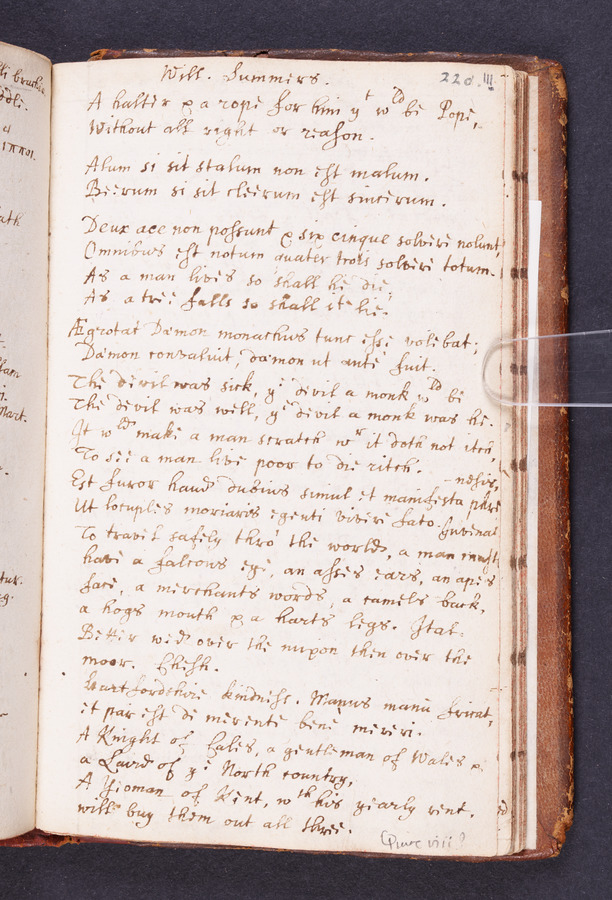 Will. Summers.
220. III
A halter & a rope for him yt wld be Pope,
Without all right or reason.
Alum si sit stalum non est malum.
Beerum si sit cleerum est sincerum.
Deux ace non possunt & six cinque solvere nolunt,
Omnibus est notum quater trois solvere totum.
As a man lives so shall he die,
As a tree falls so shall it lie.
Ægrotat Dæmon monachus tunc esse volebat;
Dæmon convaluit, dæmon ut ante fuit.
The devil was sick, ye devil a monk wld be
The devil was well, ye devil a monk was he.
It wld make a man scratch wr it doth not itch,
To see a man live poor to die ritch.
Est furor haud dubius simul et manifesta phre
nesis,
Ut locuples moriaris egenti vivere fato. Juvenal
To travel safely thro' the world, a man must
have a falcons eye, an asses ears, an apes
face, a merchants words, a camels back,
a hogs mouth & a harts legs. Ital.
Better wed over the mixon then over the
moor. Chesh.
Hartfordshire kindness. Manus manu fricat,
et par est de merente bene mereri.
A Knight of Cales, a gentleman of Wales &
a Laird of ye North country,
A Yeoman of Kent, wth his yearly rent,
will buy them out all three.